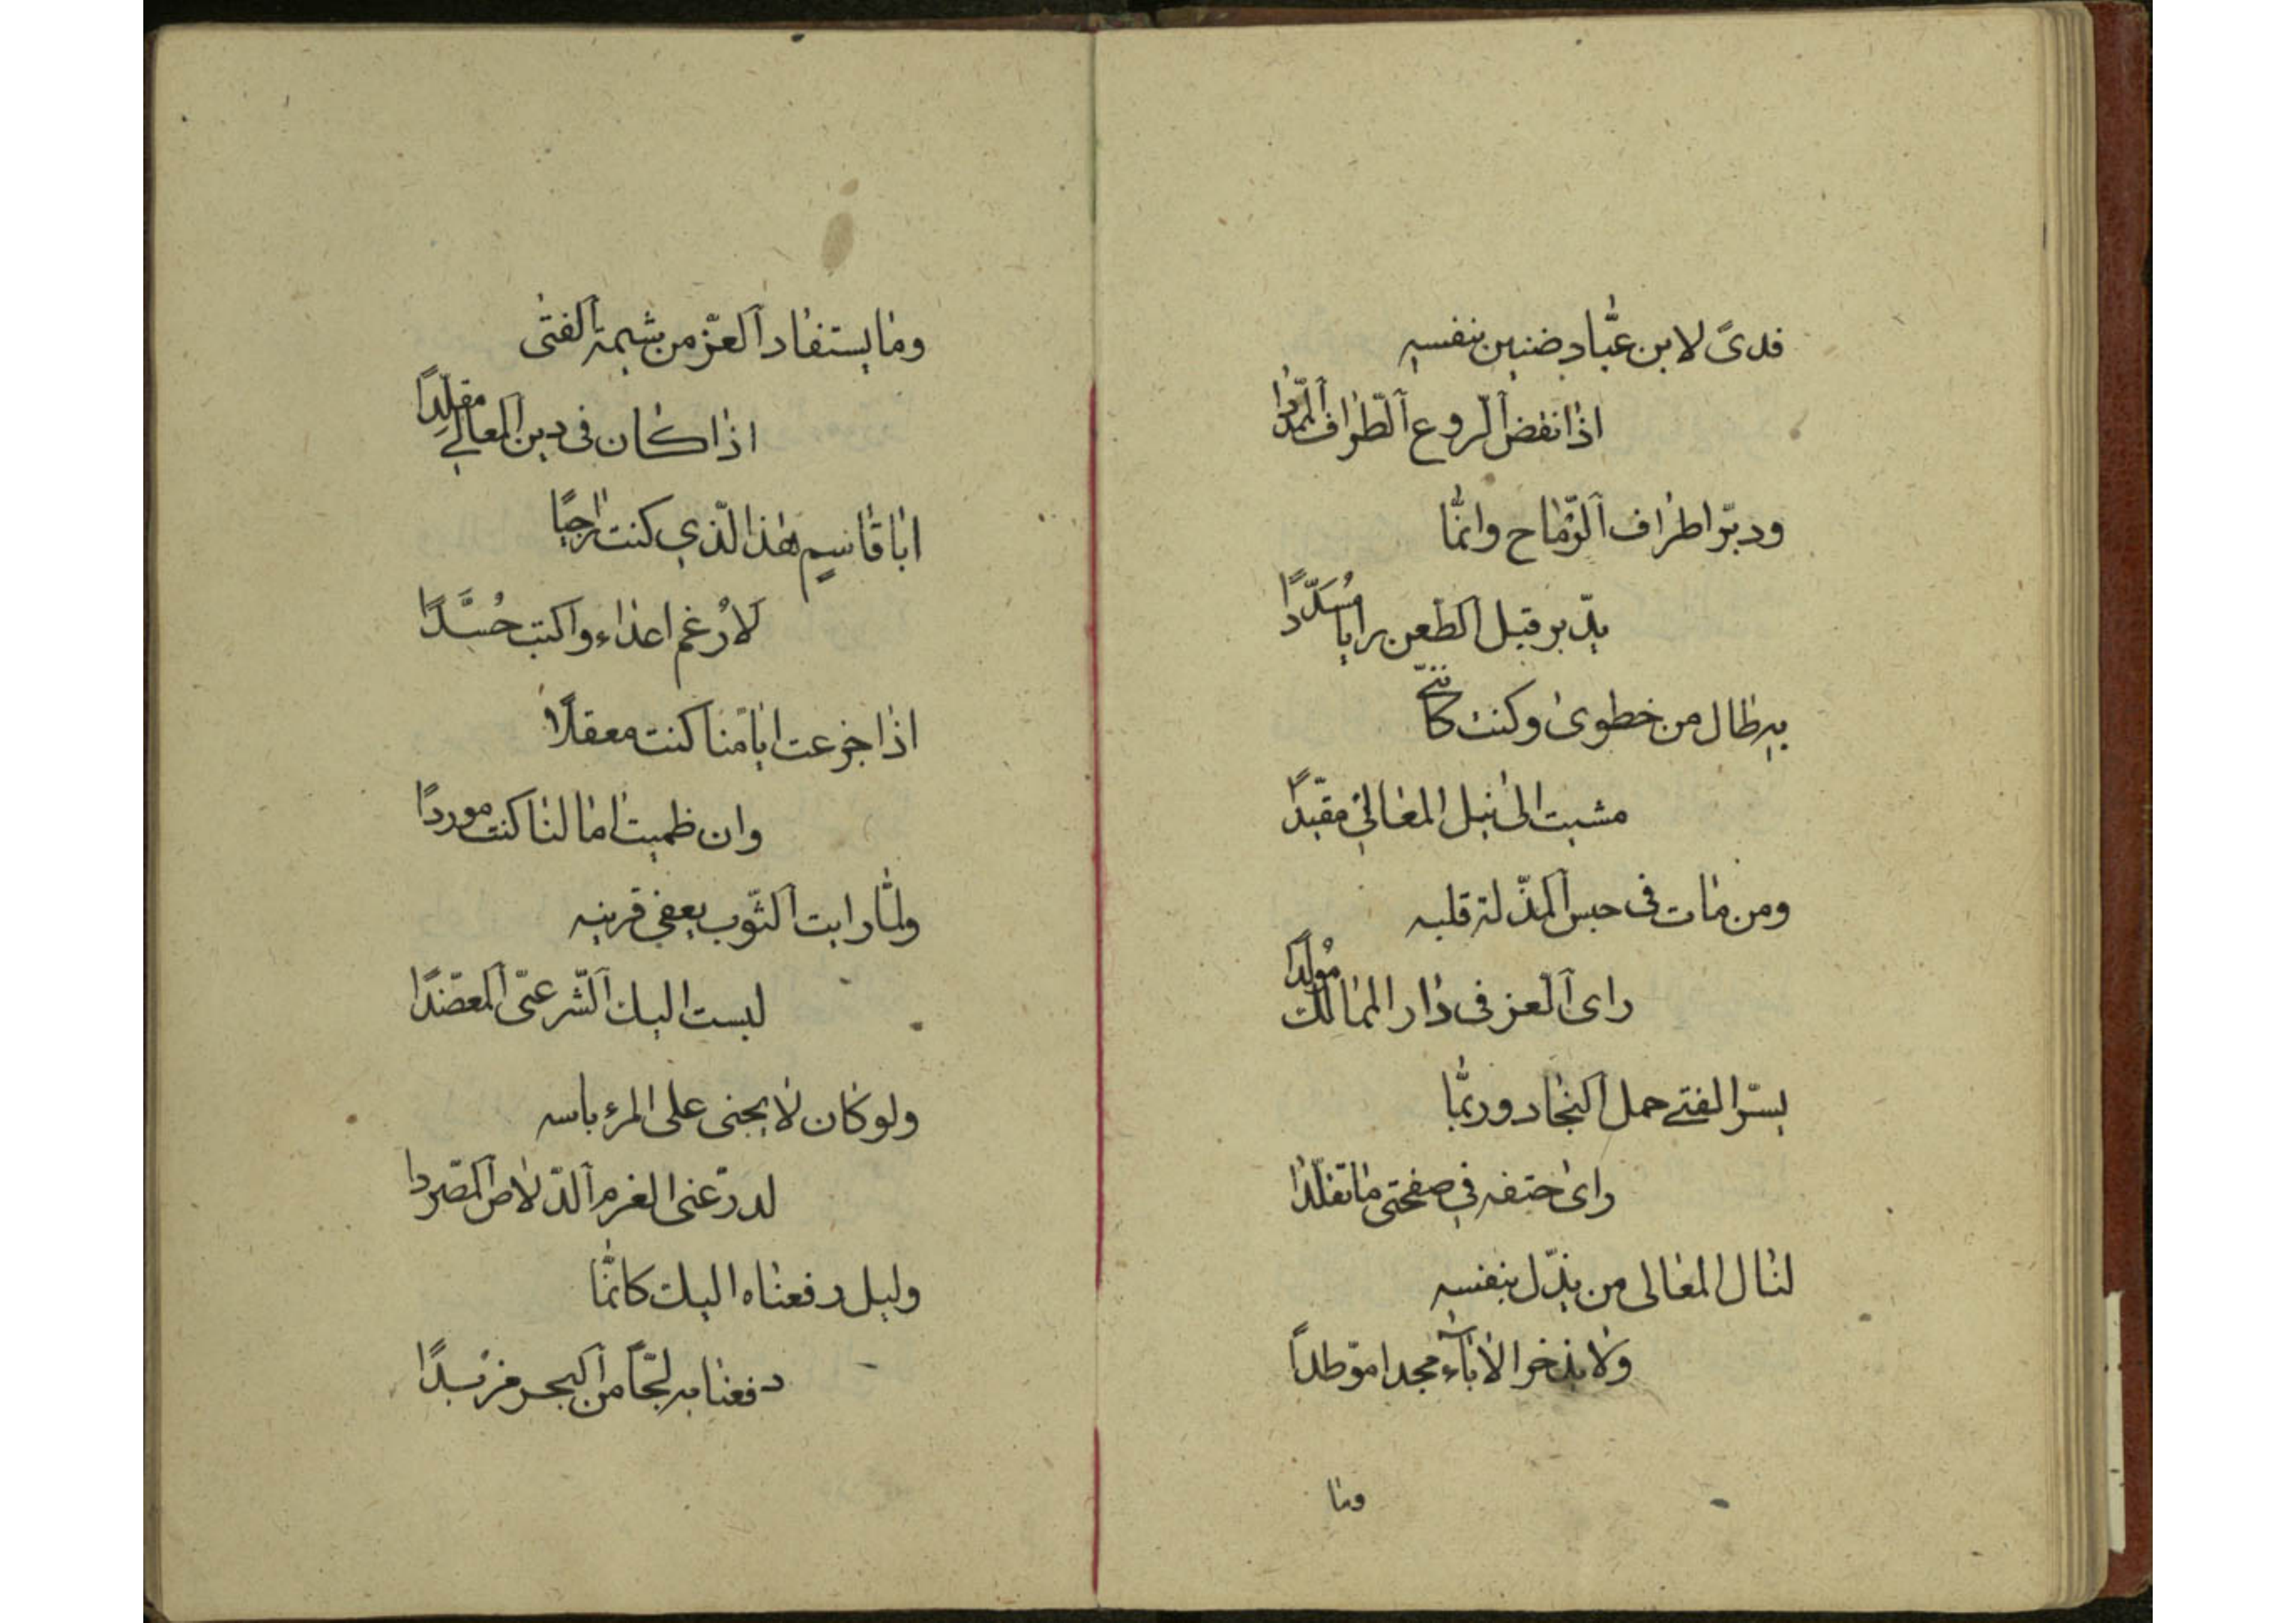 فدىً لابن عبّاد ضنين بنفسه
اذا نفض الرّوع الطّراف الممدّدا
ودبّر اطراف الرّماح وانّما
يدّبر قبل الطّعن رايا مُسدّدًا
به طال من خطوى وكنت كانّنى
مشيت الى نيل المعالي مقيّدًا
ومن مات في حبس المذّلة قلبه
راى العز في دار الممالك مُولِدًا
يسرّ الفتى حمل النجاد وربّما
راى حتفه في صفحتى ما تقلّدا
لنال المعالى من يذّل بنفسه
ولا يذخر الاباء مجدا موّطداً
وما
وما يستفاد العزّ من شيمة الفتى
اذا كان في دين المعالي مقلّدًا
ابا قاسم هذا الّذي كنت راجيًا
لارُغم اعداء واكبت حُسَّدًا
اذا جزعت ايامنا كنت معقلًا
وان ظميت امالنا كنت موردًا
ولمّا رايت الثّوب يعفى قرينه
لبست اليك الشّرعبّى المعضّدًا
ولو كان لا يجنى على المرء باسه
لدرّعنى العزم الدّلاص المسّردا
وليل دفعناه اليك كانّما
دفعنا به لجًّا من البحر مزبدًا